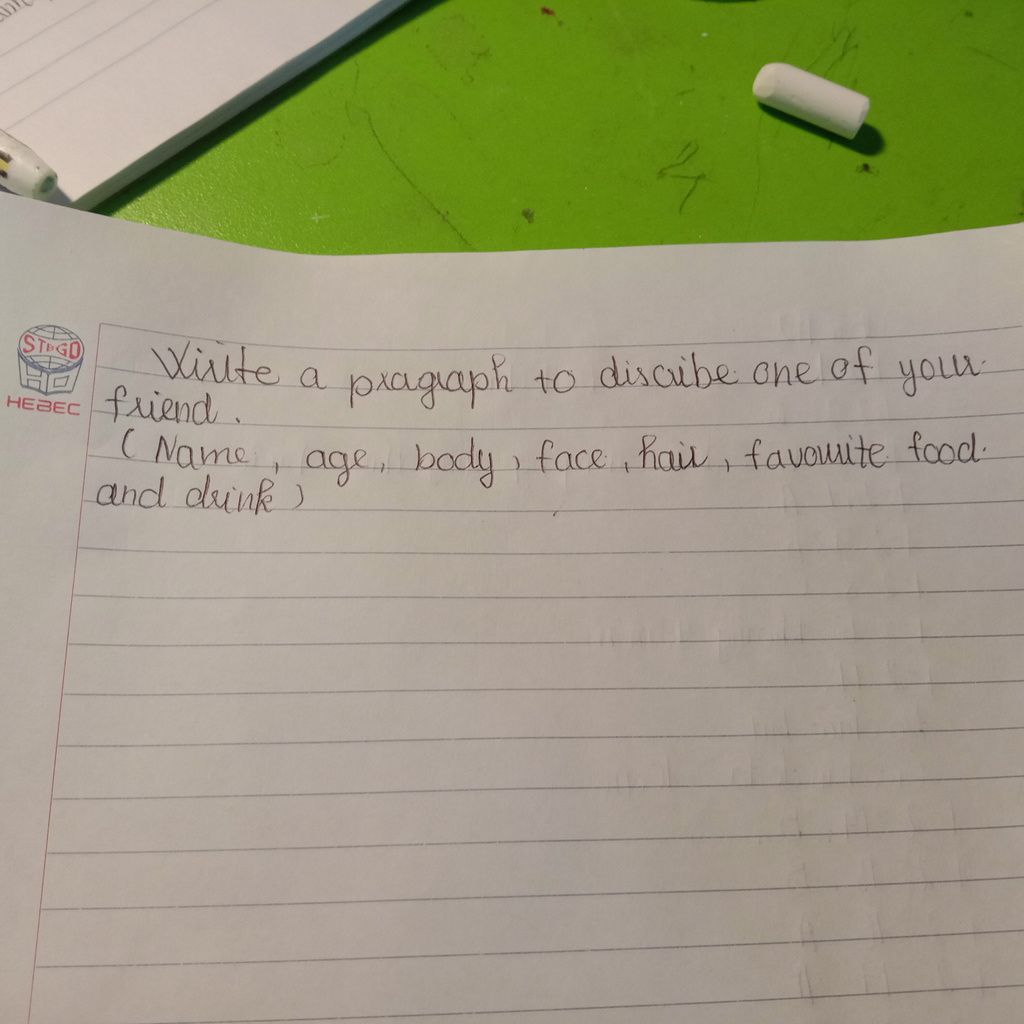 STAGO
HEBEC
Write a pragraph to discribe one of your
friend.
( Name, age, body, face, hair, favourite food
and drink )